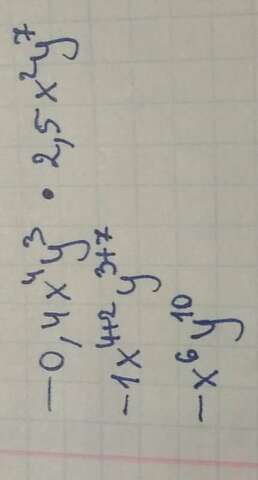 —0,4x⁴y³ • 2,5x²y⁷
-1x⁴⁺²y³⁺⁷
—x⁶y¹⁰